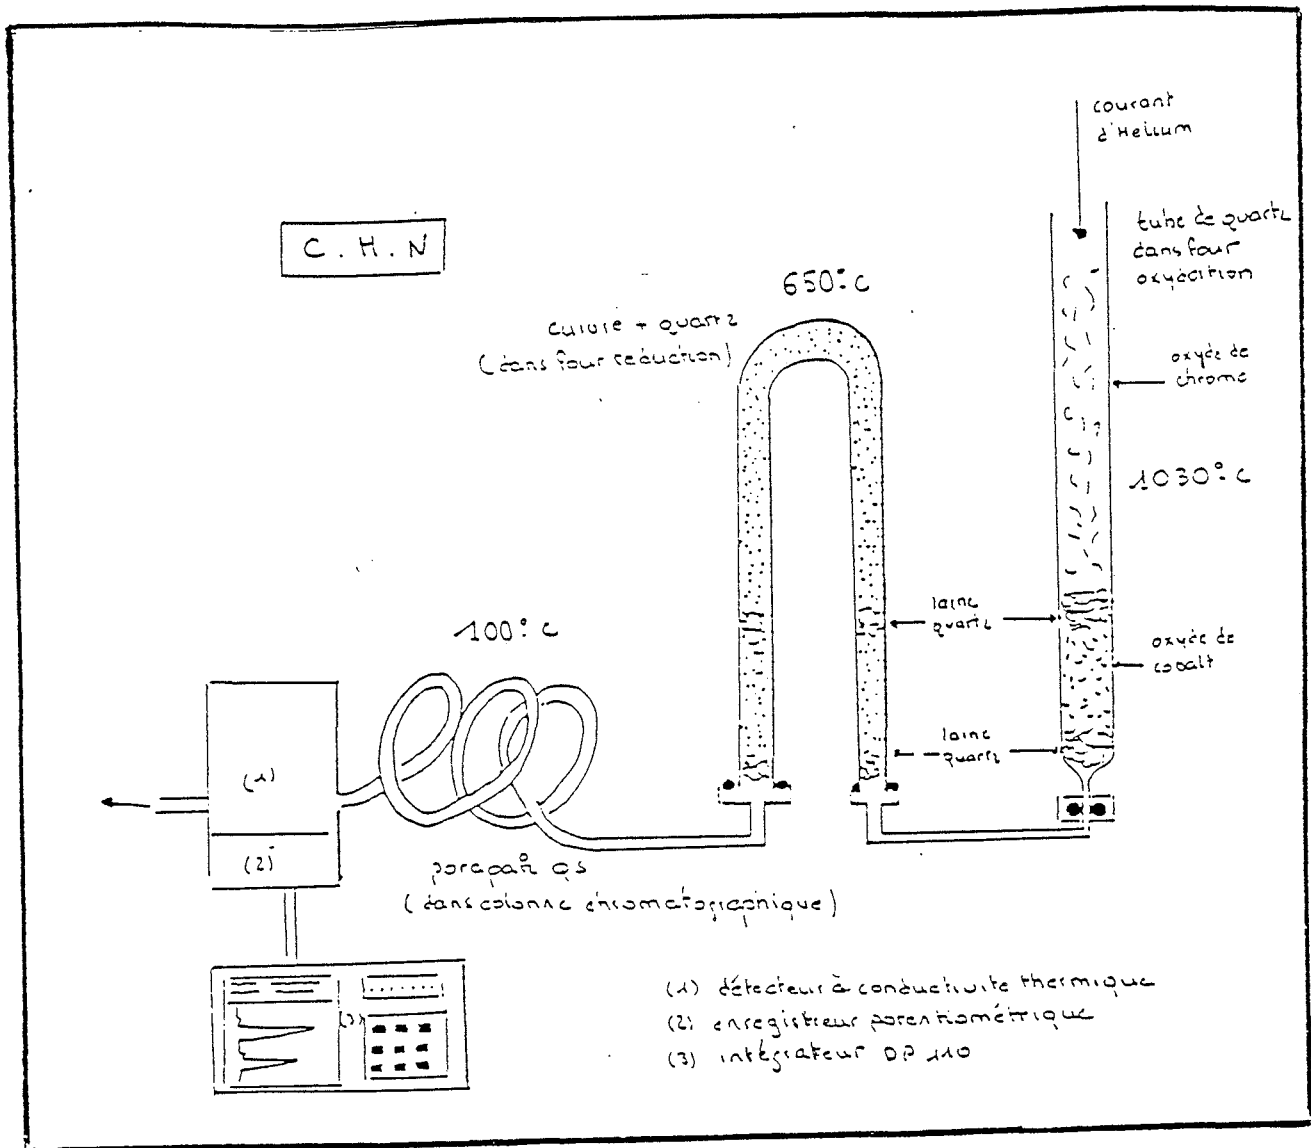 courant
d'Helium
C.H.N
tube de quartz
dans four
oxydation
650°C
cuivre + quartz
(dans four réduction)
oxyde de
chrome
1030°C
laine
quartz
100°C
oxyde de
cobalt
laine
quartz
(1)
(2)
porapak QS
(dans colonne chromatographique)
(3)
(1) détecteur à conductivité thermique
(2) enregistreur potentiométrique
(3) intégrateur DP 110